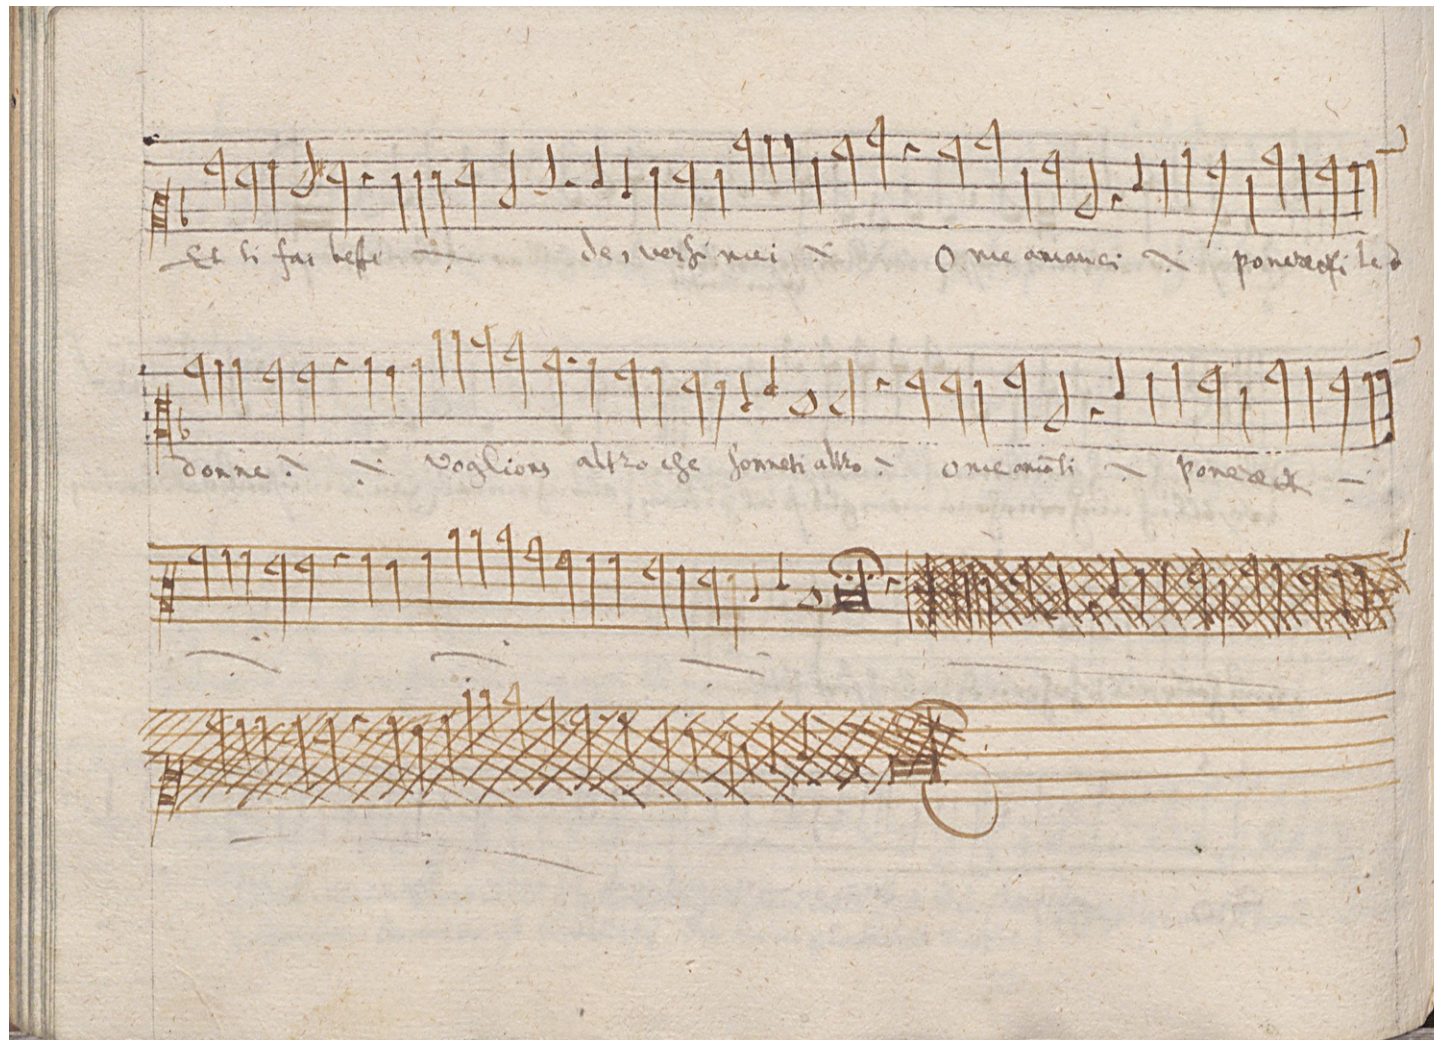 Et li fai beffe de i versi miei O me amanti ponete
donne voglions altro che sonneti altro o me amāti ponete